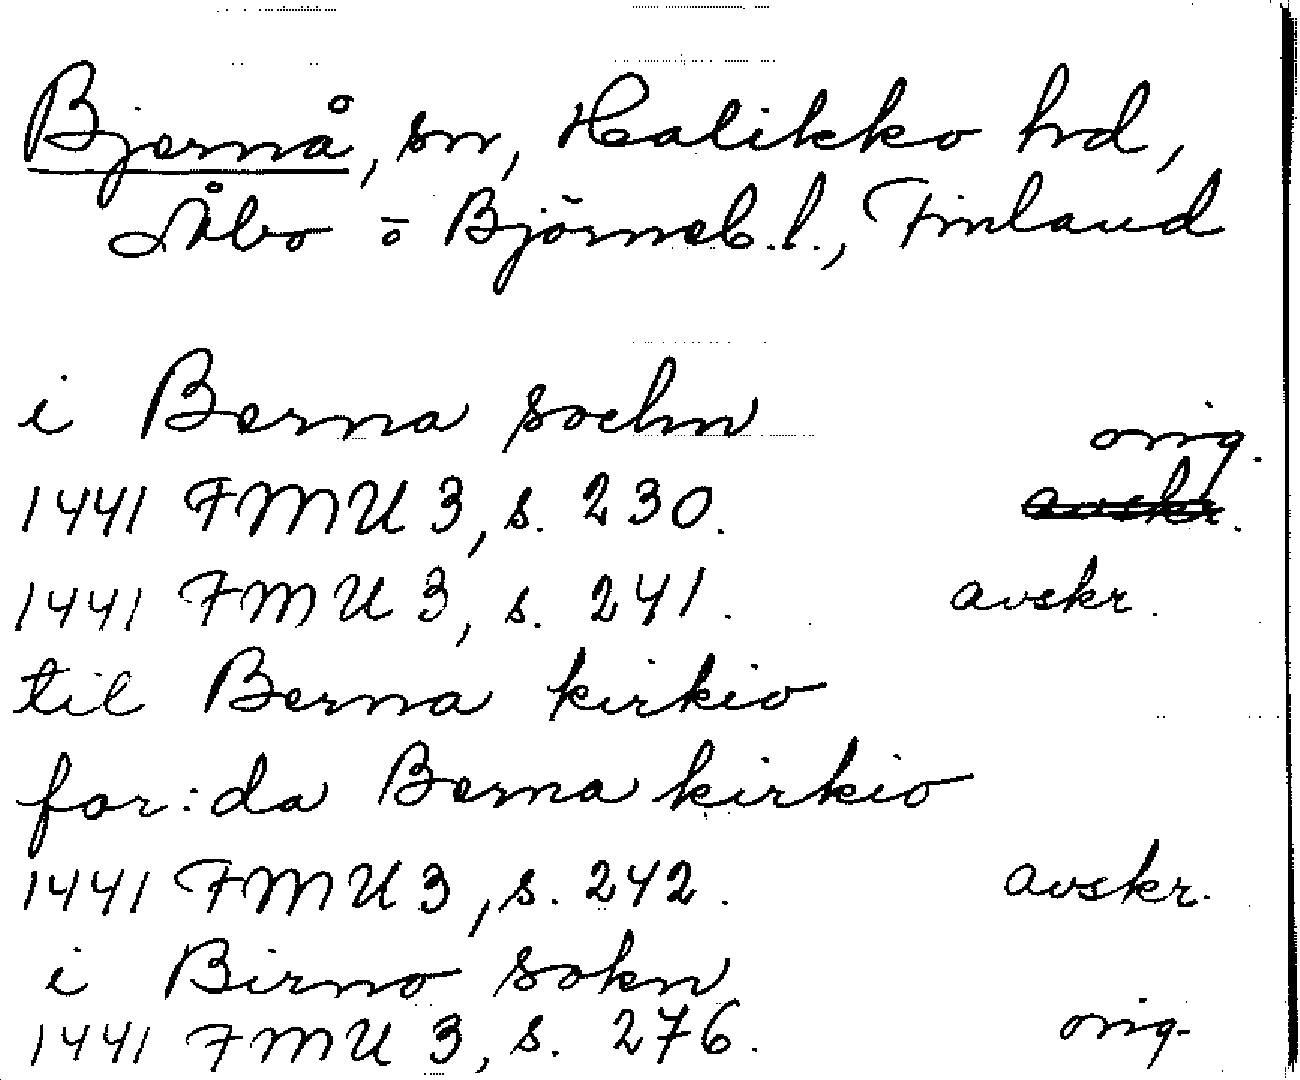 Bjernå, sn, Halikko hd,
Åbo o Björneb. l., Finland
i Berna soehn
orig.
1441 FMU 3, s. 230. avskr.
1441 FMU 3, s. 241. avskr.
til Berna kirkio
for: da Berna kirkio
1441 FMU 3, s. 242. avskr.
i Birno sokn
1441 FMU 3, s. 276. orig.